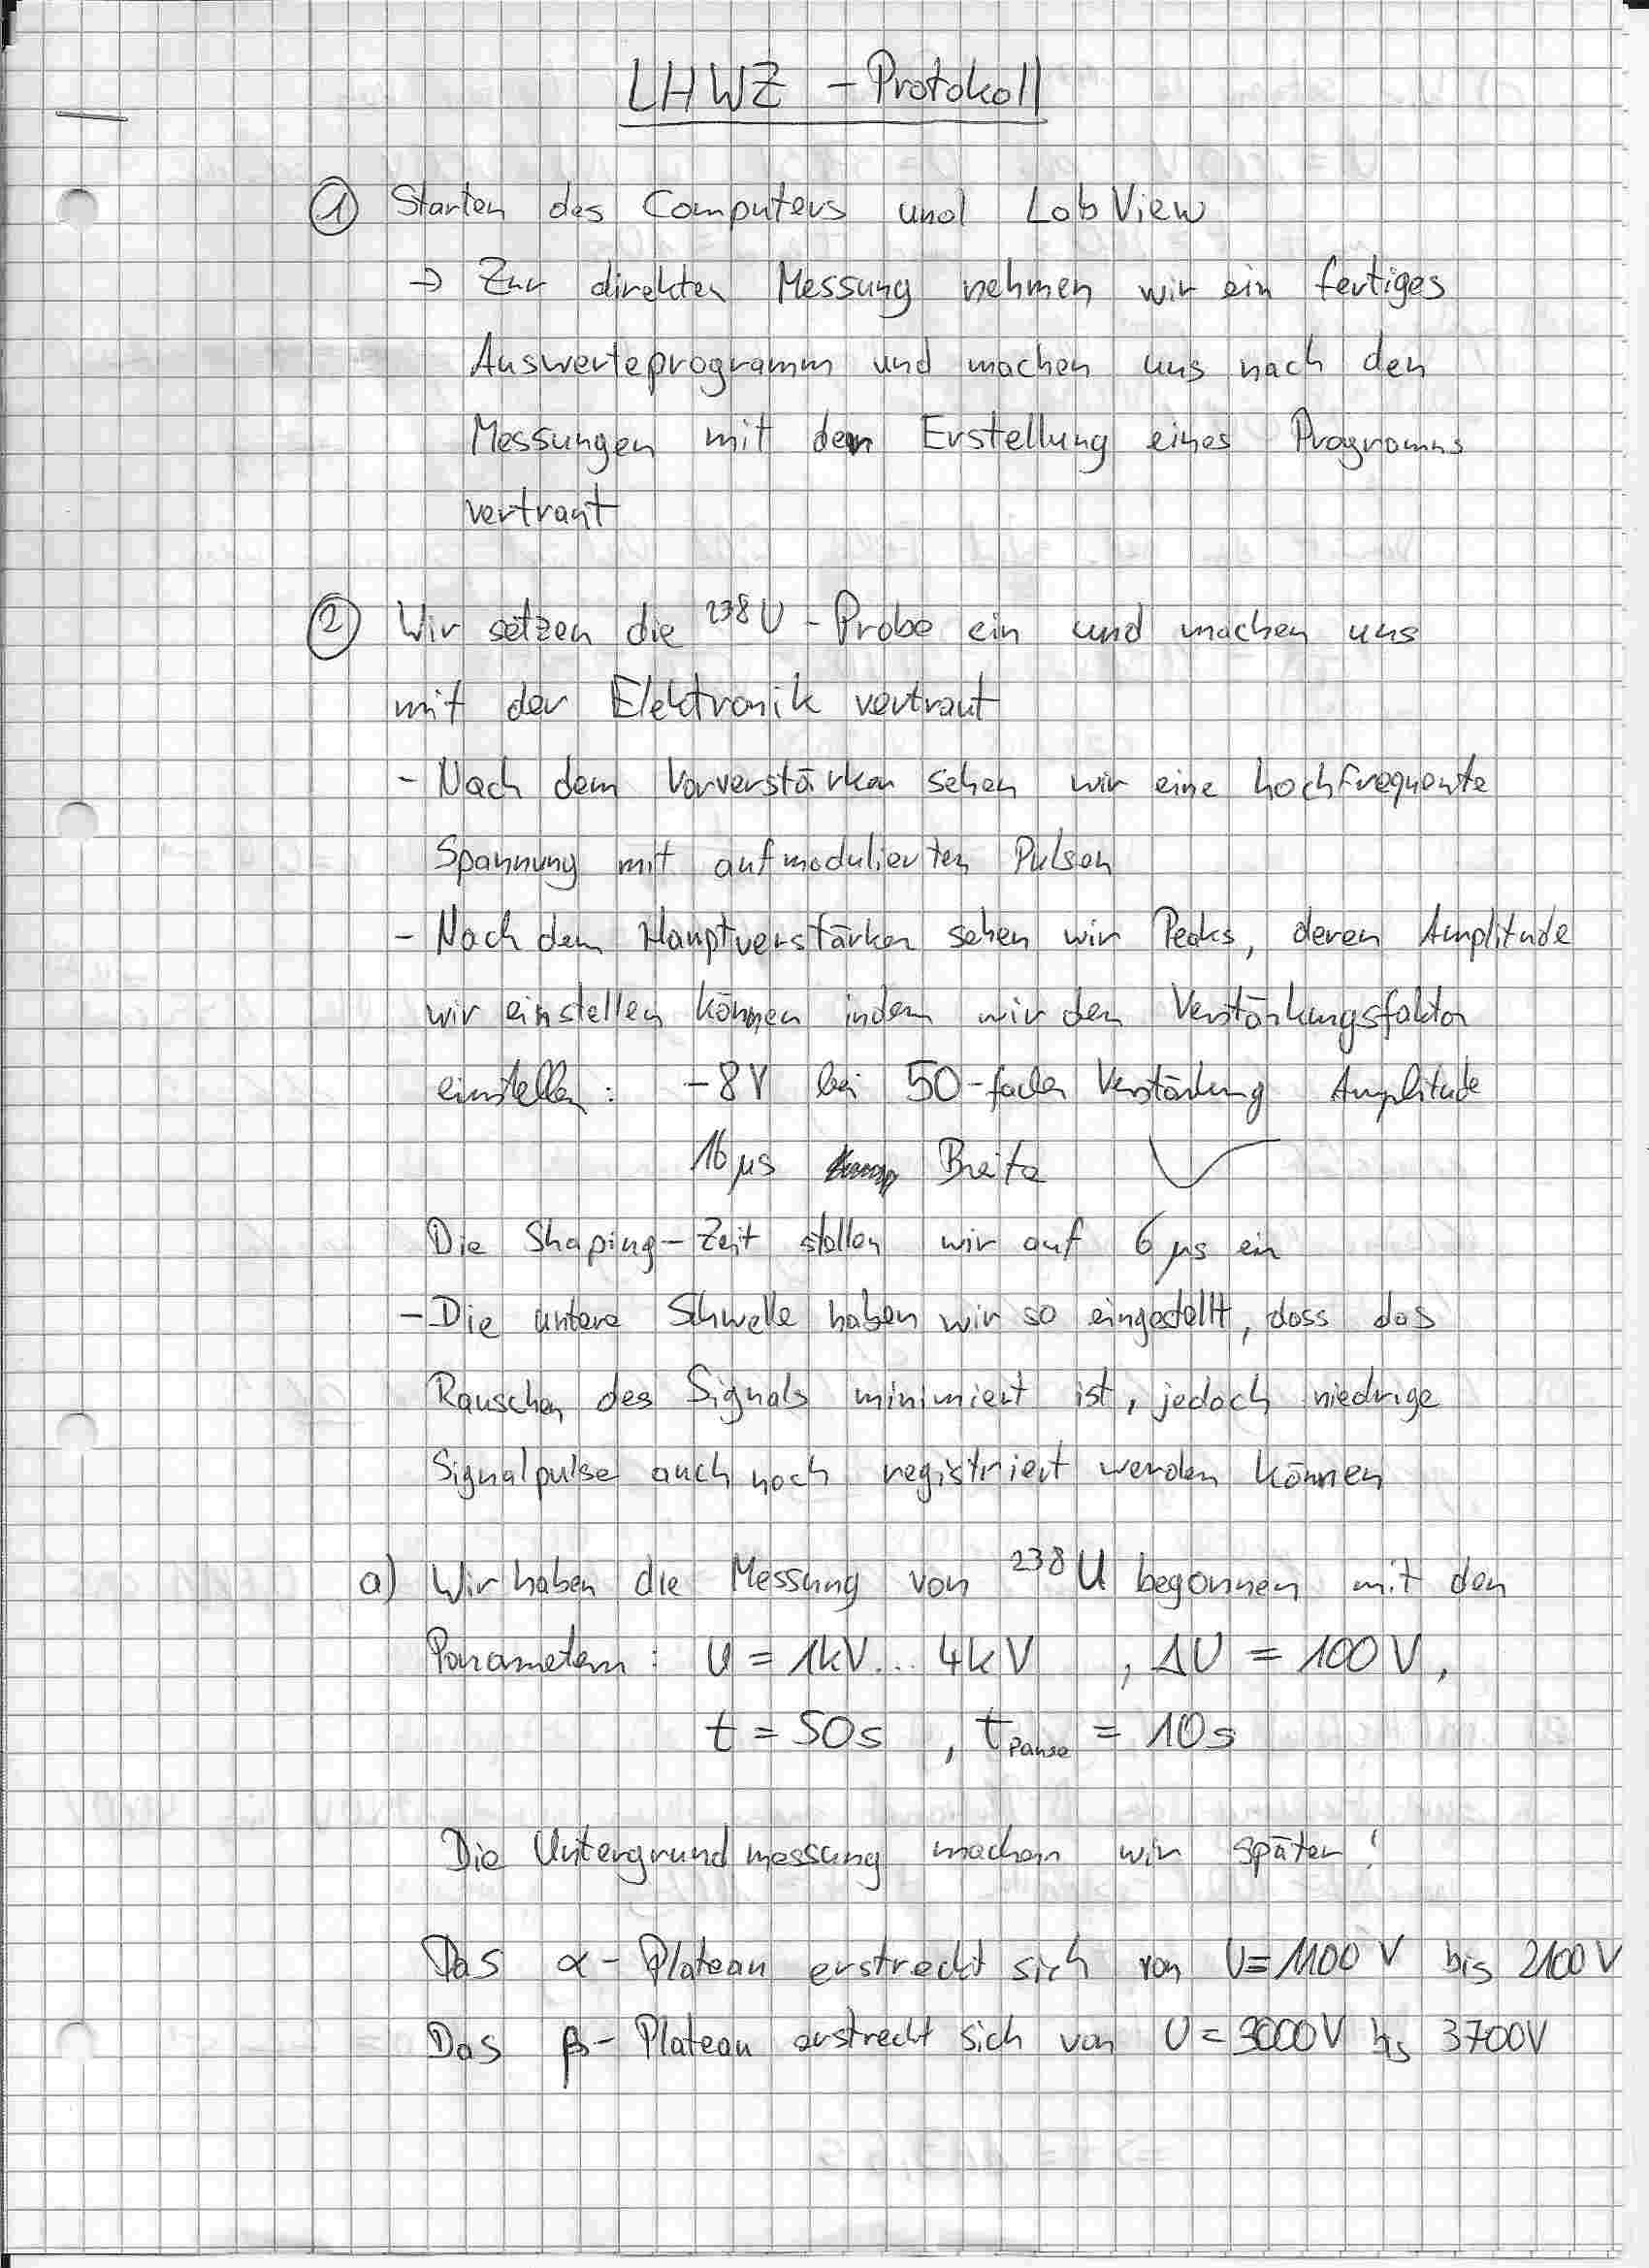 LHWZ - Protokoll
① Starten des Computers und LabView
→ Zur direkten Messung nehmen wir ein fertiges
Auswerteprogramm und machen uns nach den
Messungen mit der Erstellung eines Programms
vertraut
② Wir setzen die ²³⁸U - Probe ein und machen uns
mit der Elektronik vertraut
- Nach dem Vorverstärker sehen wir eine hochfrequente
Spannung mit aufmodulierten Pulsen
- Nach dem Hauptverstärker sehen wir Peaks, deren Amplitude
wir einstellen können indem wir den Verstärkungsfaktor
einstellen: -8V bei 50-facher Verstärkung Amplitude
16 µs Breite
Die Shaping-Zeit stellen wir auf 6 µs ein
- Die untere Schwelle haben wir so eingestellt, dass das
Rauschen des Signals minimiert ist, jedoch niedrige
Signalpulse auch noch registriert werden können
a) Wir haben die Messung von ²³⁸U begonnen mit den
Parametern: U = 1kV... 4kV , ΔU = 100V,
t = 50s , t_Pause = 10s
Die Untergrundmessung machen wir später!
Das α-Plateau erstreckt sich von U = 1100 V bis 2100 V
Das β-Plateau erstreckt sich von U = 3000V bis 3700V